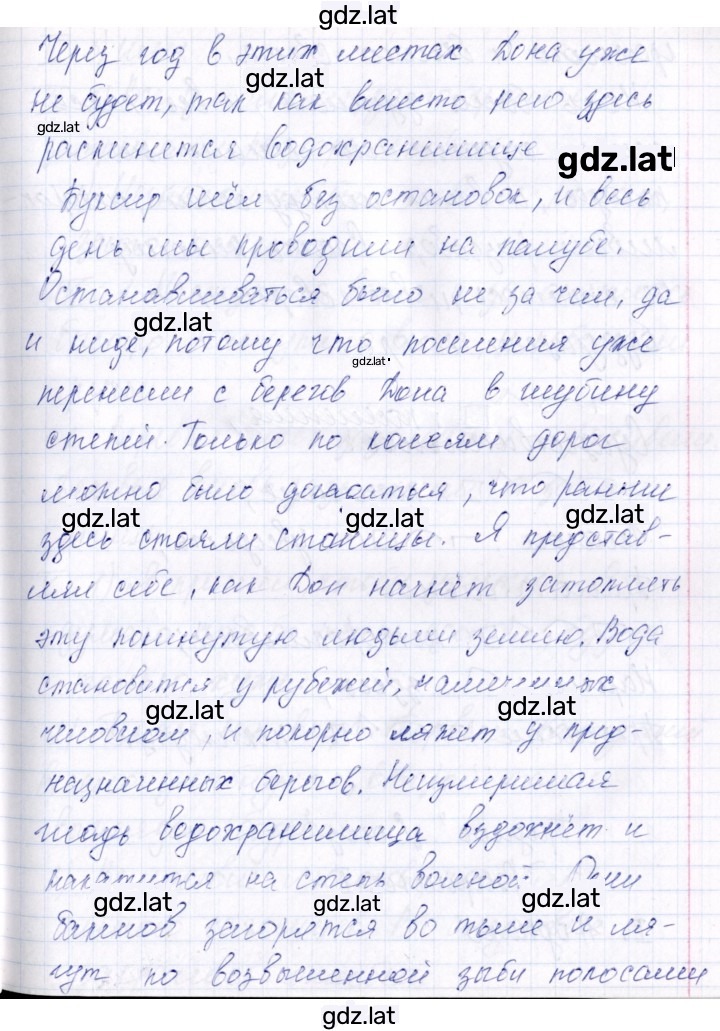 gdz.lat
Через год в этих местах Дона уже
gdz.lat
не будет, так как вместо него здесь
gdz.lat
раскинится водохранилище
gdz.lat
Буксир шёл без остановок, и весь
день мы проводили на палубе.
Останавливаться было не за чем, да
gdz.lat
и ниде, потому что поселения уже
gdz.lat
перенесли с берегов Дона в глубину
степей. Только по колеям дорог
можно было догадаться, что ранни
gdz.lat gdz.lat gdz.lat
здесь стояли станицы. Я представ-
лял себе, как Дон начнёт затоплять
эту покинутую людьми землю. Вода
становится у рубежей, намеченных
gdz.lat gdz.lat
человеком, и покорно ляжет у пред-
назначенных берегов. Неизмеримая
гладь водохранилища вздохнёт и
накатится на степь волной. Огни
gdz.lat gdz.lat gdz.lat
бакенов загорятся во тьме и ля-
гут по возвышенной зыби полосами
gdz.lat